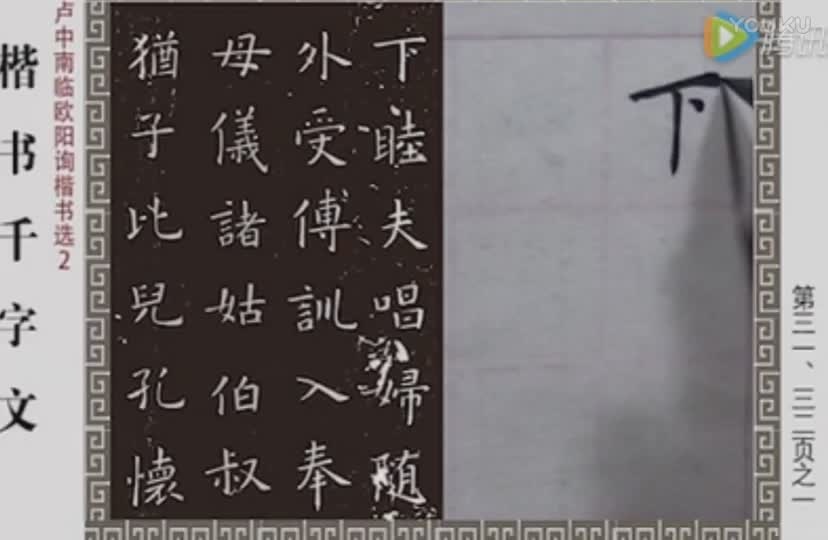 楷书千字文
卢中南临欧阳询楷书选2
下睦夫唱婦随
外受傅訓入奉
母儀諸姑伯叔
猶子比兒孔懷
下
第三一、三二页之一
YOUKU
腾讯